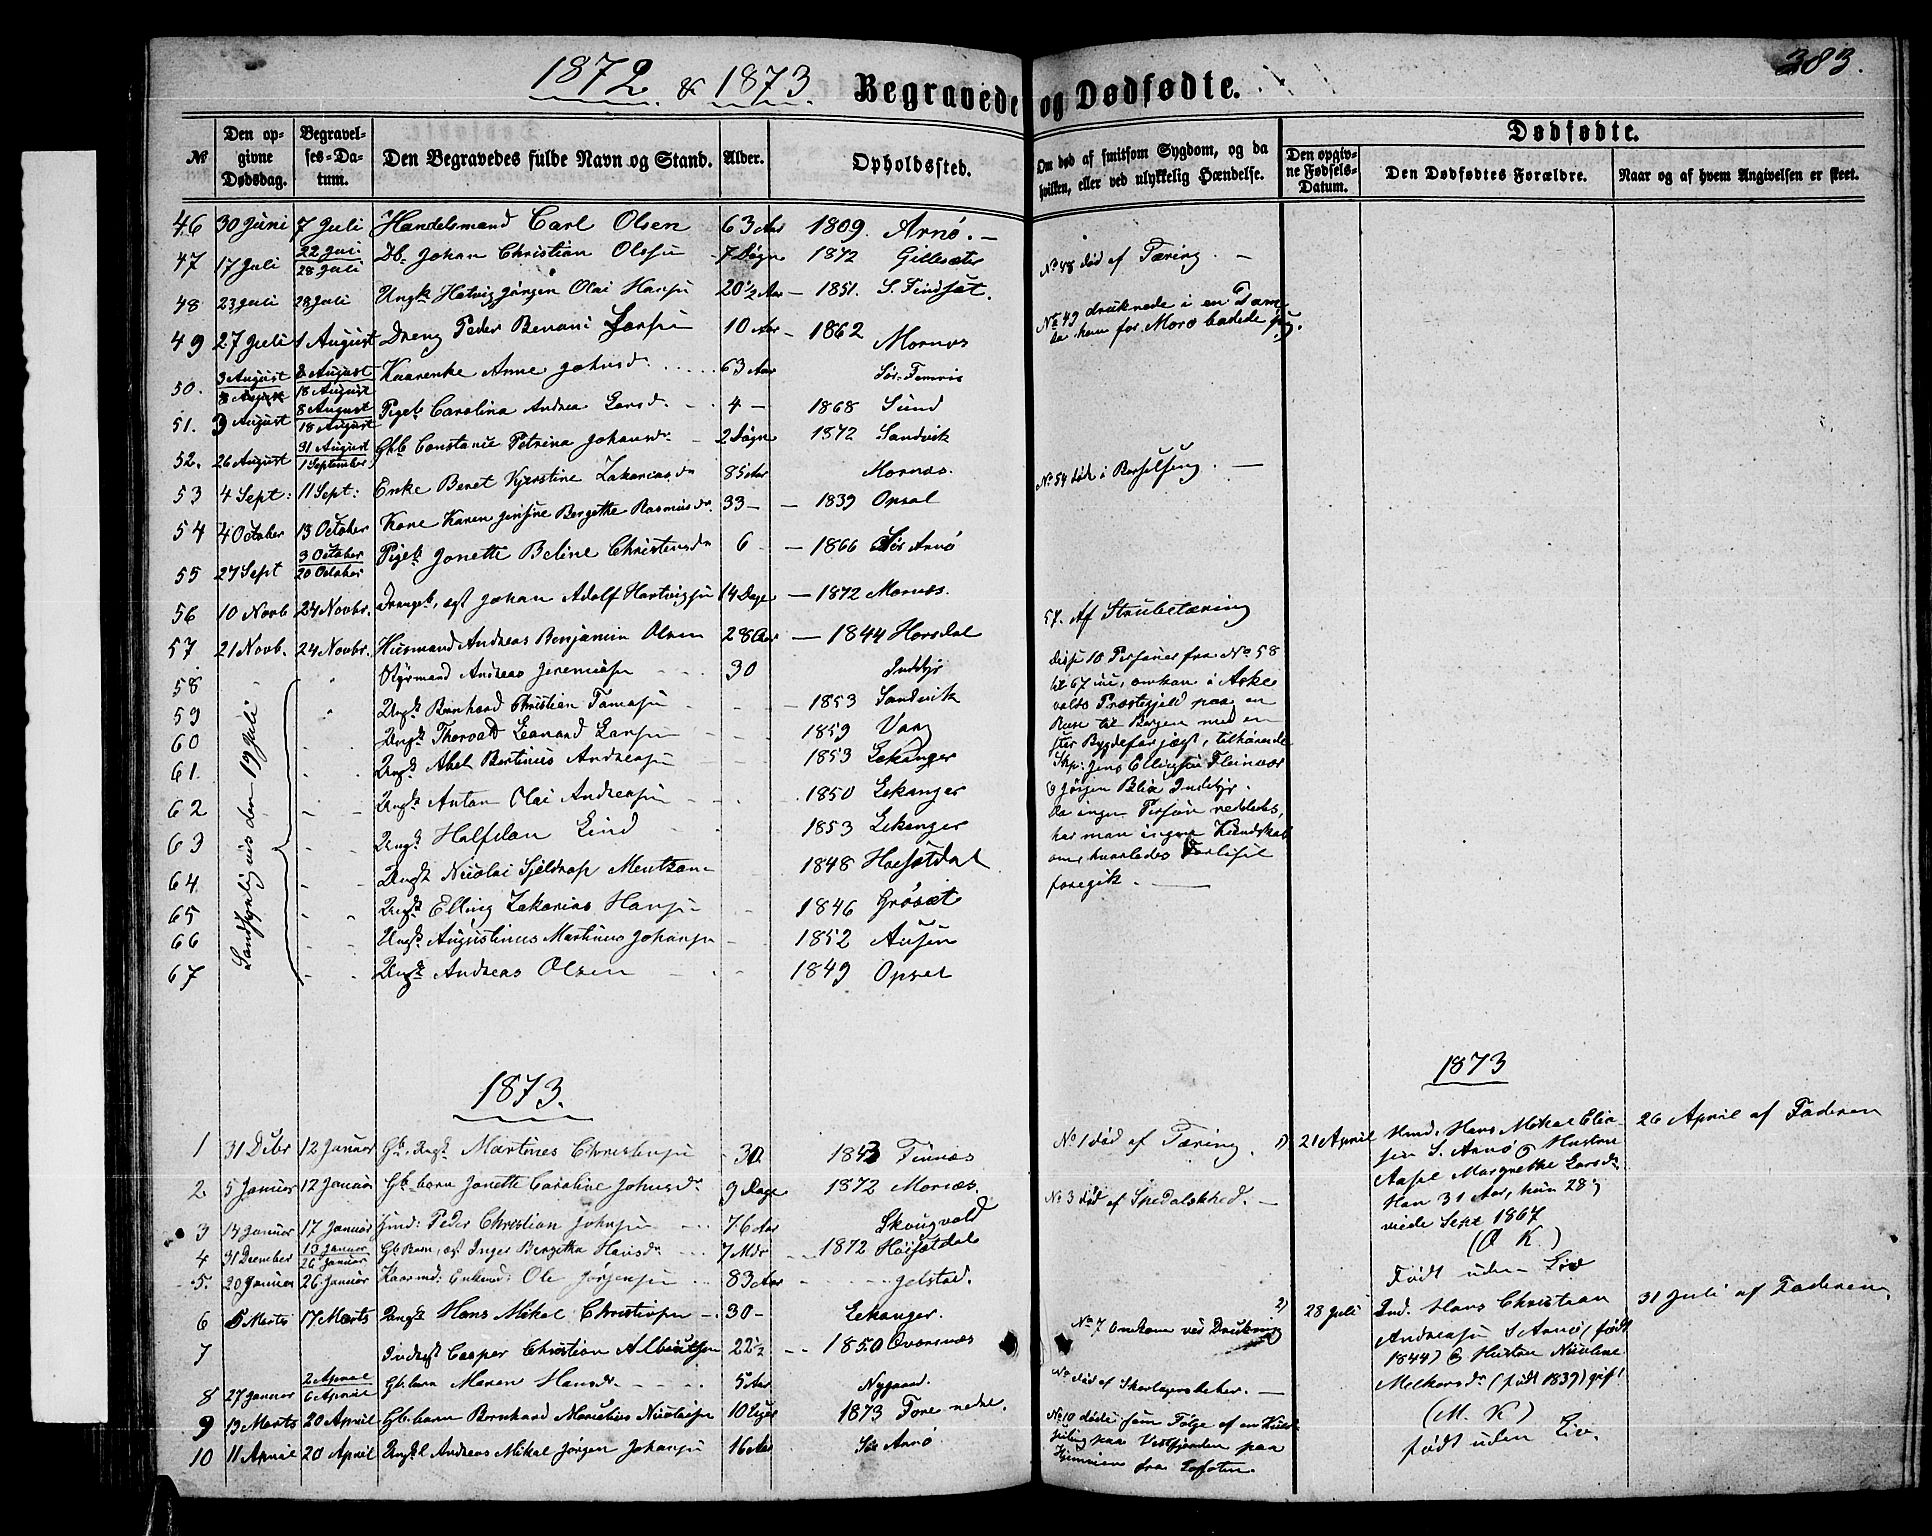 1872 & 1873. Begravede og Dødfødte. 383.
No Den opgivne Dødsdag. Begravelses-Datum. Den Begravedes fulde Navn og Stand. Alder. Opholdssted. Om død af smitsom Sygdom, og da hvilken, eller ved ulykkelig Hændelse. Dødfødte. Den opgivne Fødsels-Datum. Den Dødfødtes Forældre. Naar og af hvem Angivelsen er skeet.
46 30 Juni 7 Juli Handelsmand Carl Olsen 63 Aar 1809. Arnø. —
47 17 Juli 22 Juli 28 Juli Db. Johan Christian Olsen 7 Døgn 1872 Gillesæter
48 23 Juli 28 Juli Ungk Hetvig Jørgen Olai Hansen 20½ Aar — 1851. S. Findsæt.
49 27 Juli 1 August Dreng Peder Benoni 10 Aar — 1862 Mornes
50. 3 August 8 August 18 August Anne Johnsd. 63 Aar
51. 3 August 8 August 18 August Pigeb. Carolina Andrea Larsd. 4 — 1868 Sund
52. 26 August 31 August 1 September Constanse Petrina Johansd. 2 Døgn 1872 Sandvik
53 4 Sept: 11 Sept: Enke Beret Kjerstine Zakariasd. 85 Aar Mornæs.
54 4 October 13 October Kone Karen Jensine Bergitte Rasmusd. 33 — — 1839 Opsal
55 27 Sept 3 October 20 October Pigeb. Jonette Beline Christensd. 6 — 1866 Sør Arnø
56 10 Novb 24 Novbr. Drengeb. ægt Johan Adolf Hartvigsen 14 Dage — 1872 Mornæs.
57 21 Novb. 24 Novbr. Husmand Andreas Benjamin Olsen 28 Aar — 1844 Horsdal
58 Andreas Jeremiasen 30 Indbyr
59 Ungk Bernhard Christian Tomasen 1853 Sandvik
60 Ungk Thorvald Leonard Larsen 1859 Vaag
61. Ungk Abel Bertinus Andreasen 1853 Lekanger
62 Ungk Anton Olai Andreasen 1850 Lekanger
63 Ungk Halfdan Lind 1853 Lekanger
64. Ungk Nicolai Sjeldrop Mentsen 1848 Høisætdal
65 Ungk Elling Zakarias Hansen 1846 Grøsæt
66 Ungk Augustinus Martinus Johansen 1852 Ausen
67 Ungk Andreas Olsen 1849 Opsal
Sandsynligvis den 19 Juli
No 48 død af Tæring. —
No 49 druknede i en Dam
da han for Moro badede sig.
No 54 døde i Barselseng. —
57. Af Strubetæring
disse 10 Personer fra No 58
til 67 inc., omkom i Aske
volds Præstegjeld paa en
Reise til Bergen med en
ster Bygdefarjægt, tilhørende
Skp: Jens Ellingsen Fleinvær
& Jørgen Blix Indbyr.
da ingen Person reddedes,
har man ingen Kundskab
om, hvorledes Forliset
foregik. —
1873.
1 31 Debr 12 Januar Gb. Ungk Martines Christensen 30 1843 Finnæs
2 5 Januar 12 Januar Gb. barn Jonette Caroline Johnsd. 9 Dage 1872 Mornæs.
3 14 Januar 17 Januar Peder Christian Johnsen 76 Aar Skougvold
4 31 December 13 Januar 26 Januar Gb. Barn, ægt Inger Bergitha Hansd. 7 Mdr 1872 Høisætdal
5. 20 Januar 26 Januar Kaarmd: Enkemd: Ole Jørgensen 83 Aar Jelstad.
6 5 Marts 17 Marts Ungk Hans Mikal Christensen 30 — Lekanger.
7 Casper Christian Albrigtsen 22½ 1850 Overnæs
8 27 Januar 2 April 6 April Gb. barn Maren Hansd. 5 Aar Nygaard.
9 13 Marts 20 April Gb. barn Bernhard Marelius Nicolaisen 10 Uger 1873 Fore nedre.
10 11 April 20 April Ungk Andreas Mikal Jørgen Johansen 16 Aar Sør Arnø
No 1 død af Tæring.
No 3 død af Spedalskhed. —
No 7 omkom ved Drukning
No død af Skarlagensfeber. —
No 10 døde som Følge af en
paa Vestfjorden paa
Hjemveien fra Lofoten.
1873
1) 21 April Hans Mikal Elia-
sen S. Arnø & Hustru
Margrethe Larsd.
Han 31 Aar, hun 28,
viede Sept 1867
(Q K.)
Født uden Liv
26 April af Faderen
2) 28 Juli Ind. Hans Christian
Andreasen S Arnø (født
1844) & Hustru Nicoline
Melkersd. (født 1839) gift
(M. K)
født uden Liv.
31 Juli af Faderen.